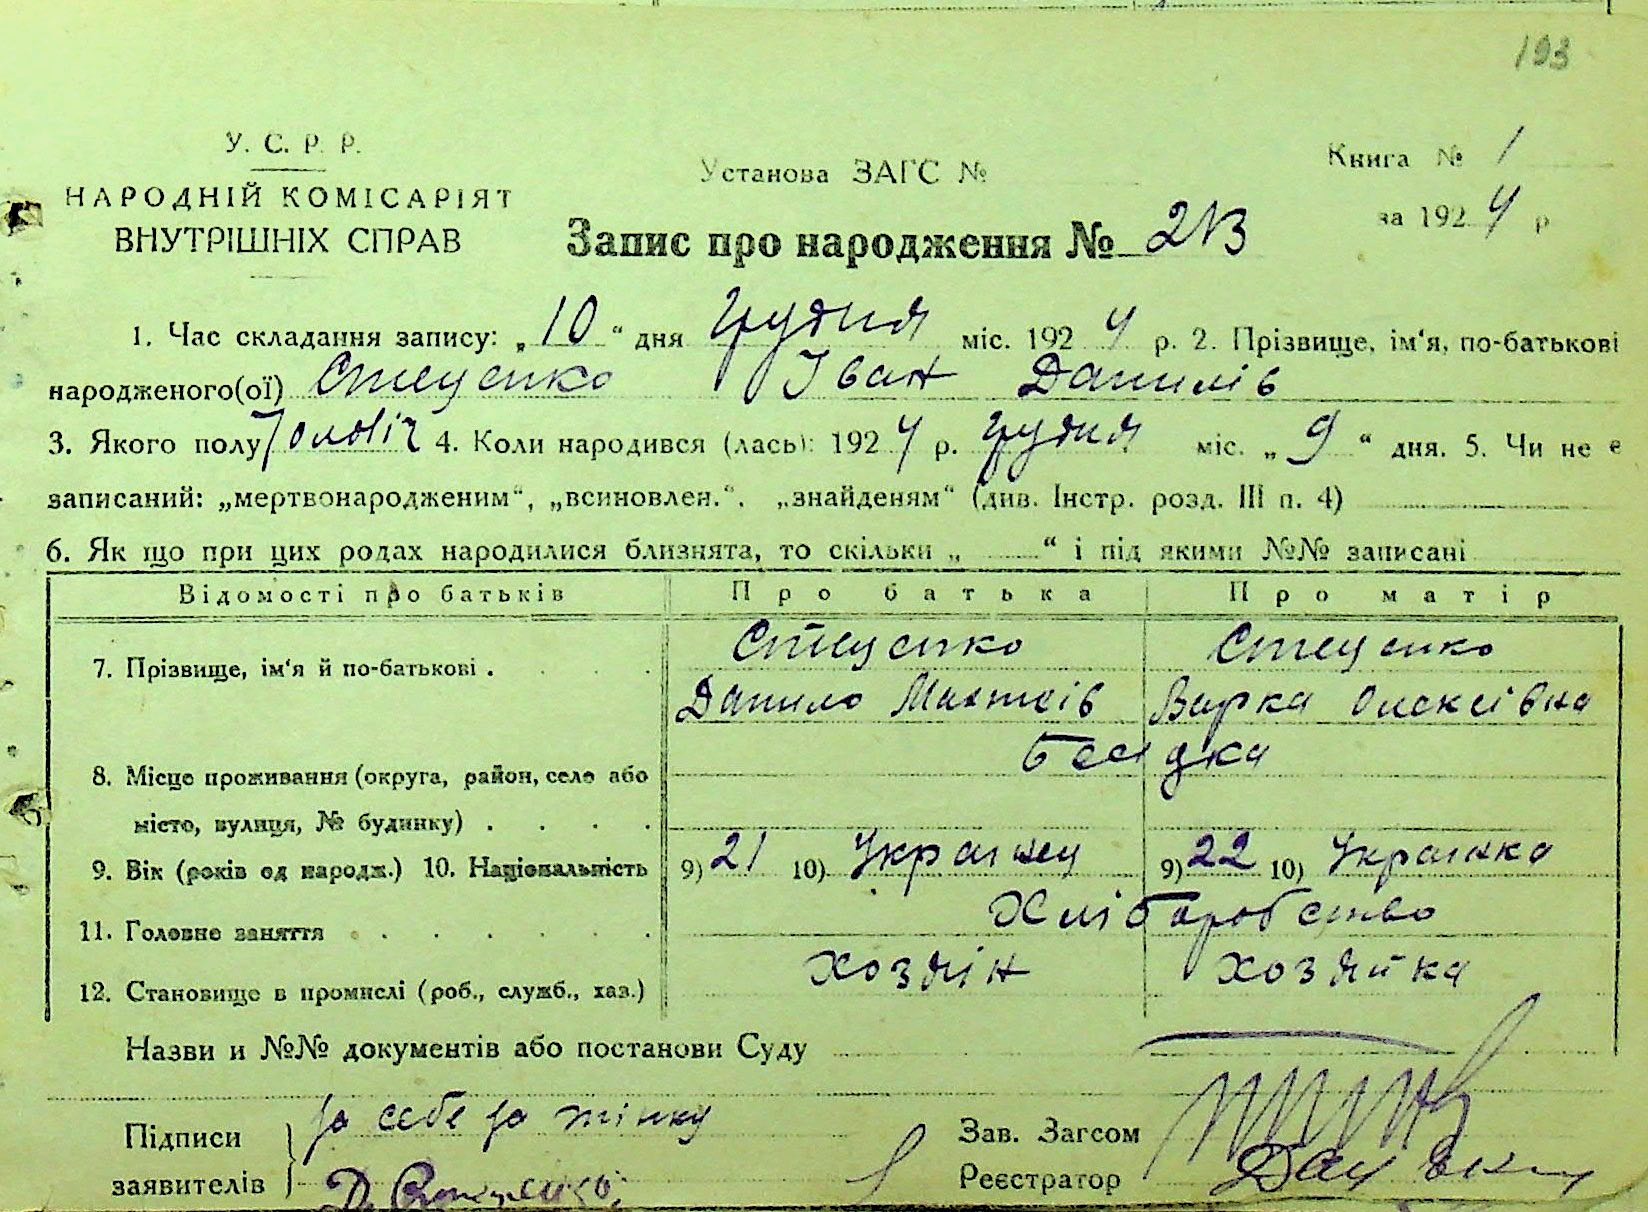 193
У. С. Р. Р.
НАРОДНІЙ КОМІСАРІЯТ
ВНУТРІШНІХ СПРАВ
Установа ЗАГС №
Книга № 1
за 1924 р
Запис про народження № 213
1. Час складання запису: „10“ дня грудня міс. 1924 р. 2. Прізвище, ім‘я, по-батькові
народженого(ої) Стеценко Іван Данилів
3. Якого полу чоловіч 4. Коли народився (лась): 1924 р. грудня міс. „9“ дня. 5. Чи не є
записаний: „мертвонародженим“, „всиновлен.“, „знайденям“ (див. Інстр. розд. III п. 4)
6. Як що при цих родах народилися близнята, то скільки „ “ і під якими №№ записані
Відомості про батьків Про батька Про матір
Стеценко Стеценко
7. Прізвище, ім‘я й по-батькові . Данило Матеїв Варка Олексіївна
8. Місце проживання (округа, район, село або Бесідка
місто, вулиця, № будинку)
9. Вік (років од народж.) 10. Національність 9) 21 10) Українец 9) 22 10) Українка
11. Головне заняття Хліборобство
12. Становище в промислі (роб., служб., хаз.) хозяїн хозяйка
Назви и №№ документів або постанови Суду
Підписи за себе за жінку
заявителів Д. Стеценко
Зав. Загсом
Реєстратор